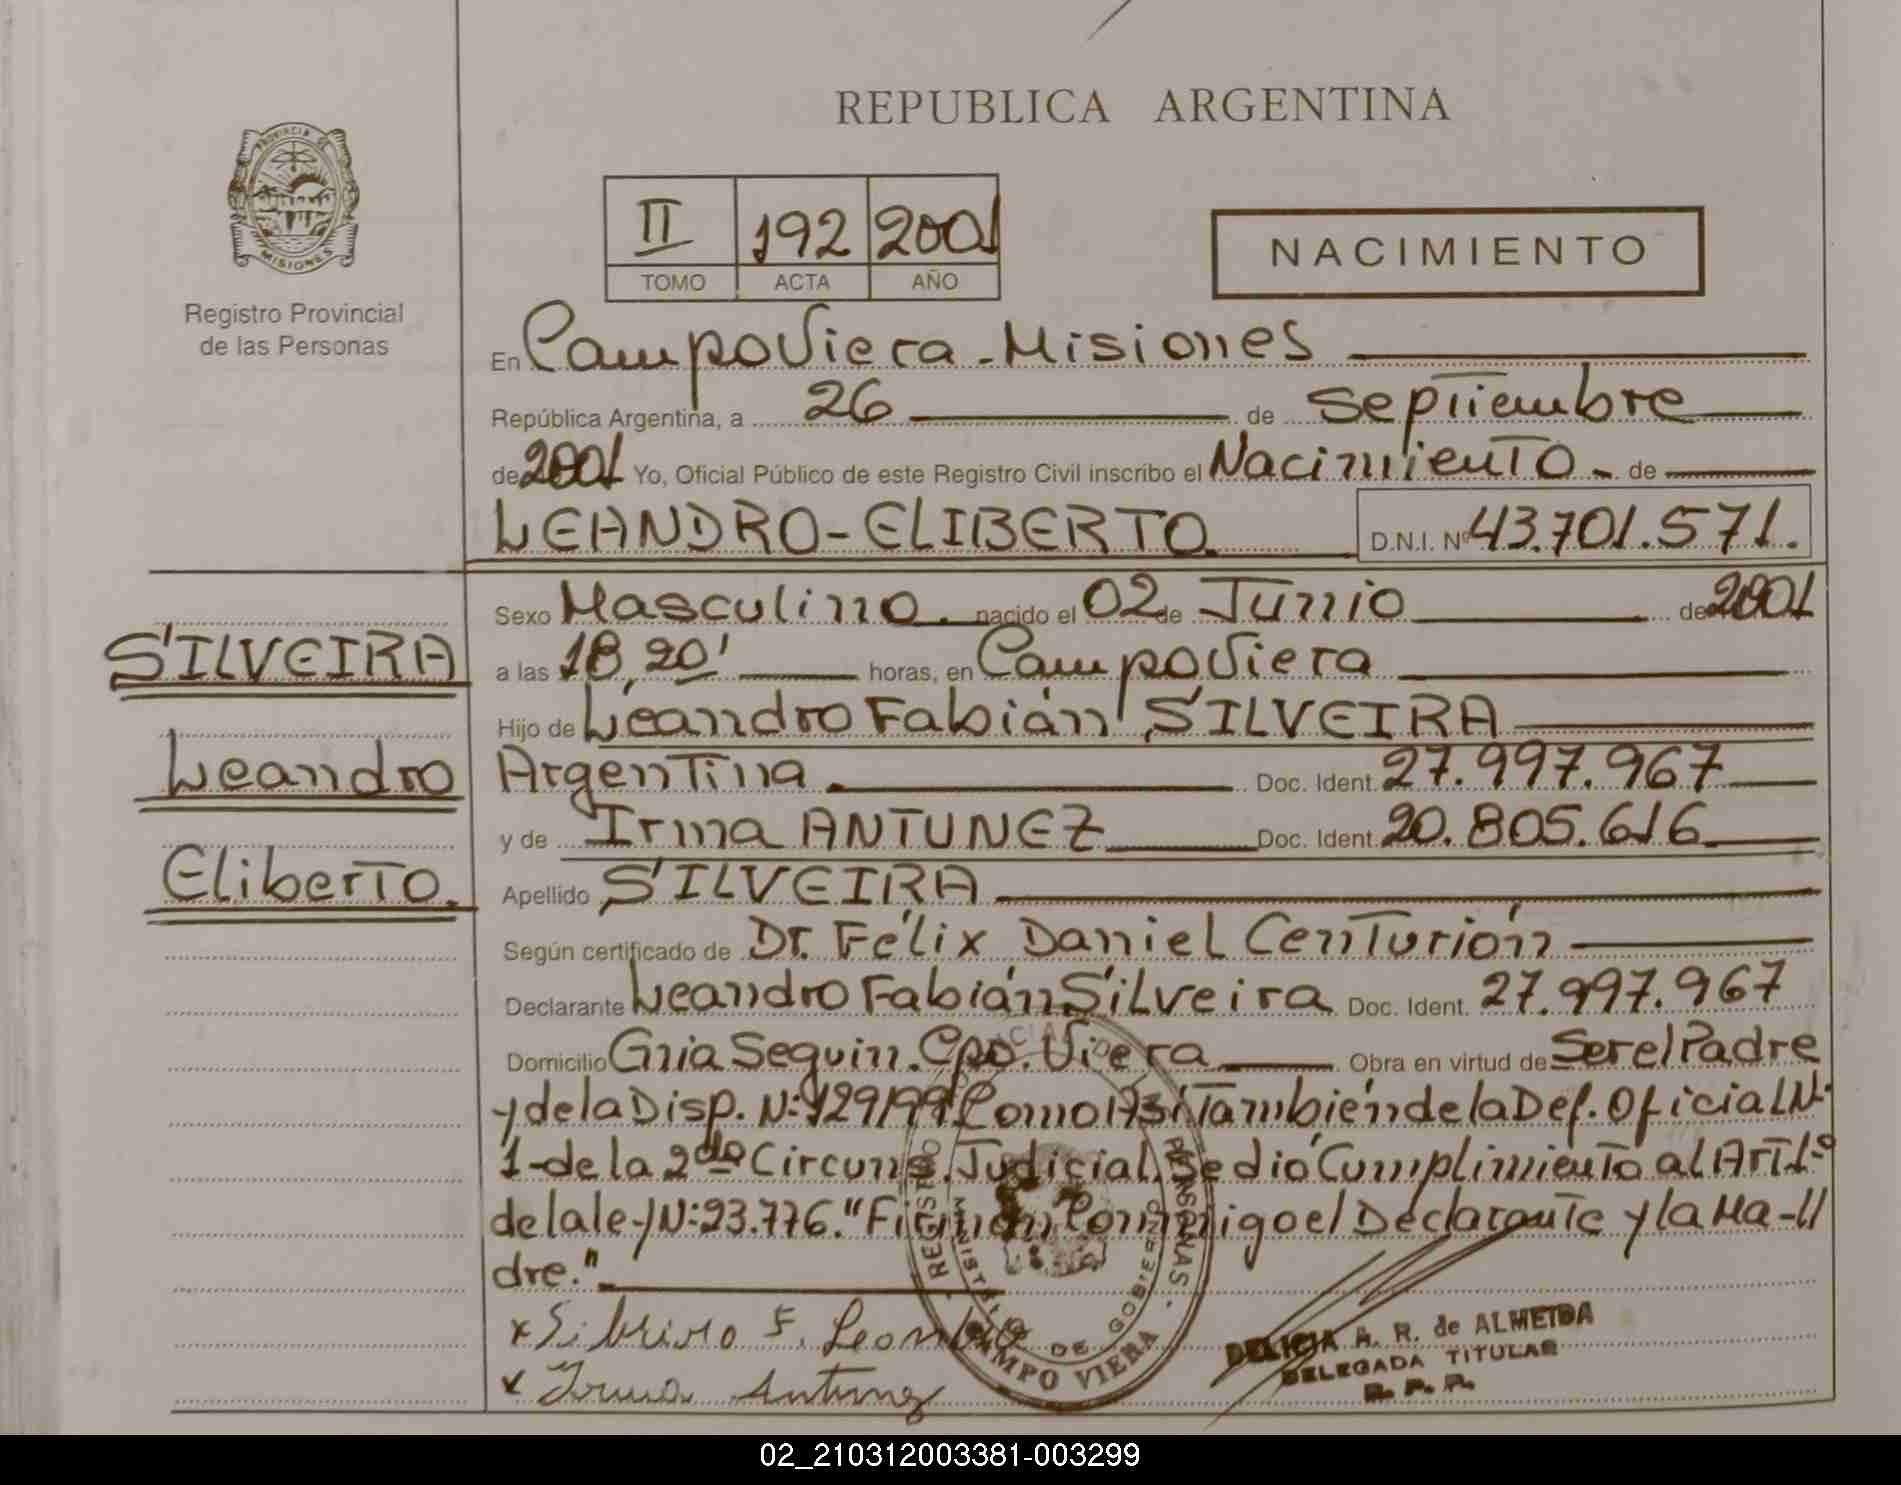 REPUBLICA ARGENTINA
PROVINCIA DE
MISIONES
Registro Provincial
de las Personas
II 192 2001
TOMO ACTA AÑO
NACIMIENTO
En Campo Viera - Misiones
República Argentina, a 26 de Septiembre
de 2001 Yo, Oficial Público de este Registro Civil inscribo el Nacimiento - de
LEANDRO - ELIBERTO D.N.I. Nº 43.701.571.
Sexo Masculino. nacido el 02 de Junio de 2001
SILVEIRA
a las 18,20' horas, en Campo Viera
Hijo de Leandro Fabián SILVEIRA
Leandro
Argentina Doc. Ident. 27.997.967
y de Irma ANTUNEZ Doc. Ident. 20.805.616
Eliberto.
Apellido SILVEIRA
Según certificado de Dr. Félix Daniel Centurión
Declarante Leandro Fabián Silveira Doc. Ident. 27.997.967
Domicilio Gnia Seguin. Cpo. Viera Obra en virtud de Ser el Padre
y de la Disp. N: 129/99 Como Así También de la Def. Oficial N:
1 - de la 2da Circuns. Judicial. Se dió Cumplimiento al Art 1º
de la ley N: 23.776. "Firman Conmigo el Declarante y la Ma-
dre."
x Silveira F. Leandro
x Irma Antunez
REGISTRO PERSONAS
MINISTERIO DE GOBIERNO
CAMPO VIERA
DELICIA A. R. de ALMEIDA
DELEGADA TITULAR
R. P. P.
02_210312003381-003299